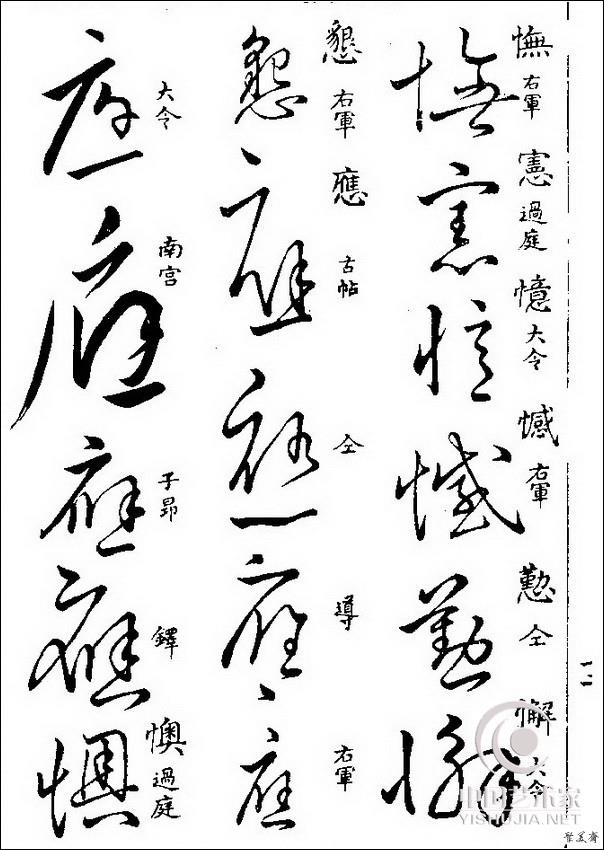 憮 右軍
憲 過庭
憶 大令
憾 右軍
懃 仝
懈 大令
懇 右軍
應 古帖
仝
導
右軍
大令
南宮
子昂
鐸
懊 過庭
一二
中国艺术家
YISHUJIA.NET